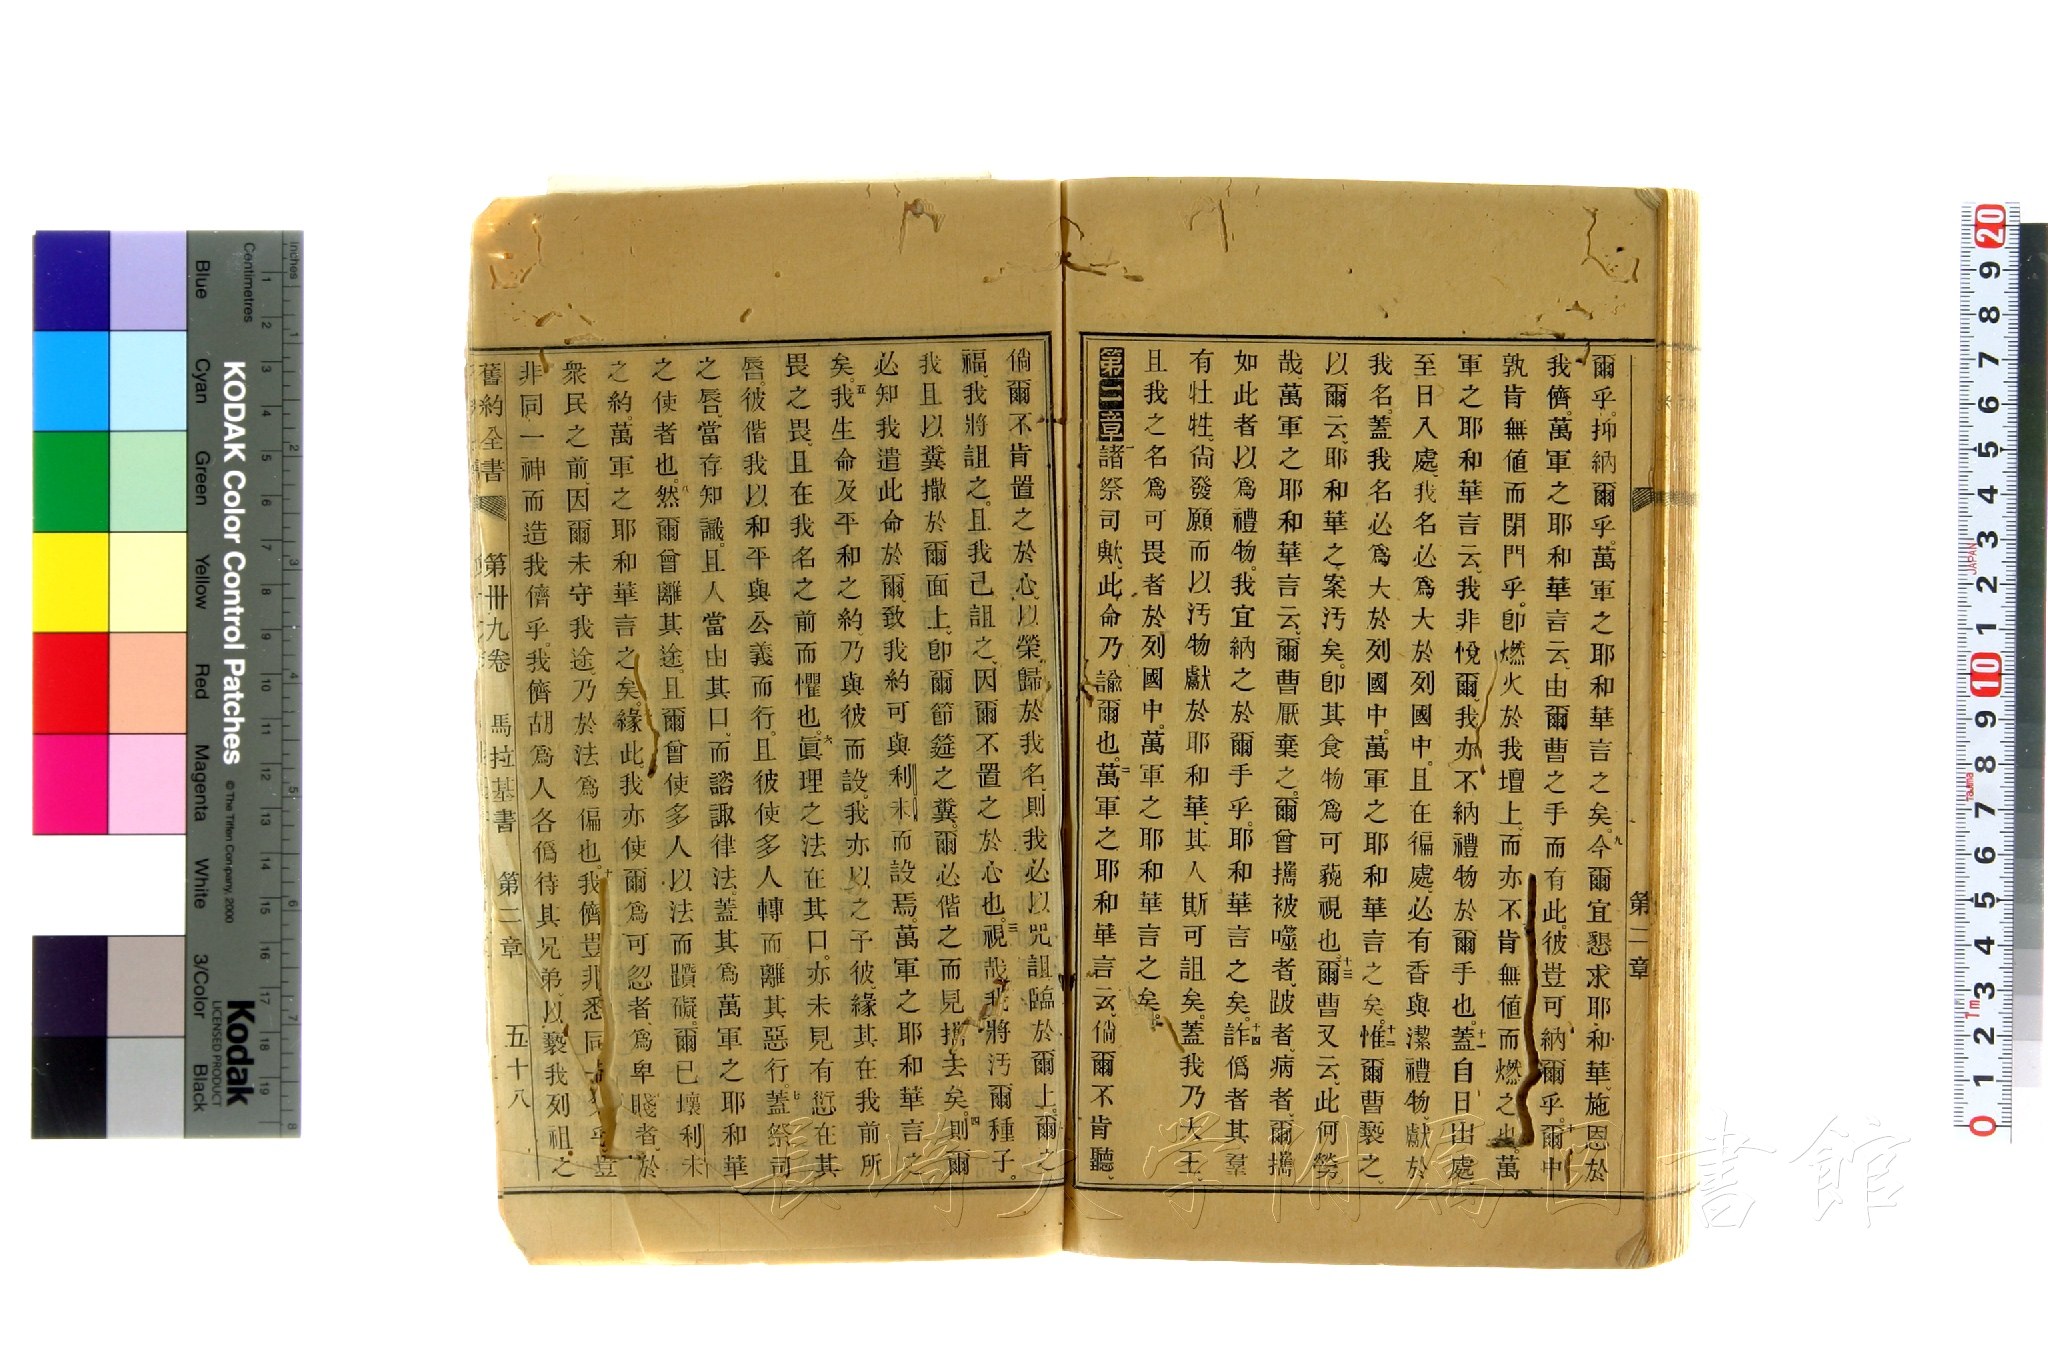 爾乎。抑納爾乎。萬軍之耶和華言之矣。九今爾宜懇求耶和華、施恩於
我儕。萬軍之耶和華言云、由爾曹之手而有此。彼豈可納爾乎。十爾中
孰肯無値而閉門乎。卽燃火於我壇上、而亦不肯無値而燃之也。萬
軍之耶和華言云、我非悅爾、我亦不納禮物於爾手也。十一蓋自日出處、
至日入處、我名必爲大於列國中。且在徧處、必有香與潔禮物、獻於
我名。蓋我名必爲大於列國中。萬軍之耶和華言之矣。十二惟爾曹褻之、
以爾云、耶和華之案汚矣。卽其食物爲可藐視也。十三爾曹又云、此何勞
哉。萬軍之耶和華言云、爾曹厭棄之。爾曾攜被噬者、跛者、病者、爾攜
如此者以爲禮物。我宜納之於爾手乎。耶和華言之矣。十四詐僞者其羣
有牡牲、尙發願而以汚物獻於耶和華、其人斯可詛矣。蓋我乃大王、
且我之名爲可畏者於列國中。萬軍之耶和華言之矣。
第二章 一諸祭司歟、此命乃諭爾也。二萬軍之耶和華言云、倘爾不肯聽、
第二章
倘爾不肯置之於心、以榮歸於我名、則我必以咒詛臨於爾上。爾之
福、我將詛之。且我已詛之、因爾不置之於心也。三視哉、我將汚爾種子。
我且以糞撒於爾面上、卽爾節筵之糞。爾必偕之而見攜去矣。四則爾
必知我遣此命於爾、致我約可與利未而設焉。萬軍之耶和華言之
矣。五我生命及平和之約、乃與彼而設。我亦以之予彼、緣其在我前所
畏之畏、且在我名之前而懼也。六眞理之法在其口、亦未見有愆在其
唇。彼偕我以和平與公義而行。且彼使多人轉而離其惡行。七蓋祭司
之唇、當存知識。且人當由其口、而諮諏律法。蓋其爲萬軍之耶和華
之使者也。八然爾曾離其途。且爾曾使多人以法而躓礙。爾已壞利未
之約。萬軍之耶和華言之矣。九緣此、我亦使爾爲可忽者、爲卑賤者、於
衆民之前、因爾未守我途、乃於法爲偏也。十我儕豈非悉同一父乎。豈
非同一神而造我儕乎。我儕胡爲人各僞待其兄弟、以褻我列祖之
舊約全書 第卅九卷 馬拉基書 第二章 五十八
KODAK Color Control Patches
© The Tiffen Company, 2000
Kodak
LICENSED PRODUCT
Inches
Centimetres
Blue
Cyan
Green
Yellow
Red
Magenta
White
3/Color
Black
長崎大学附属図書館